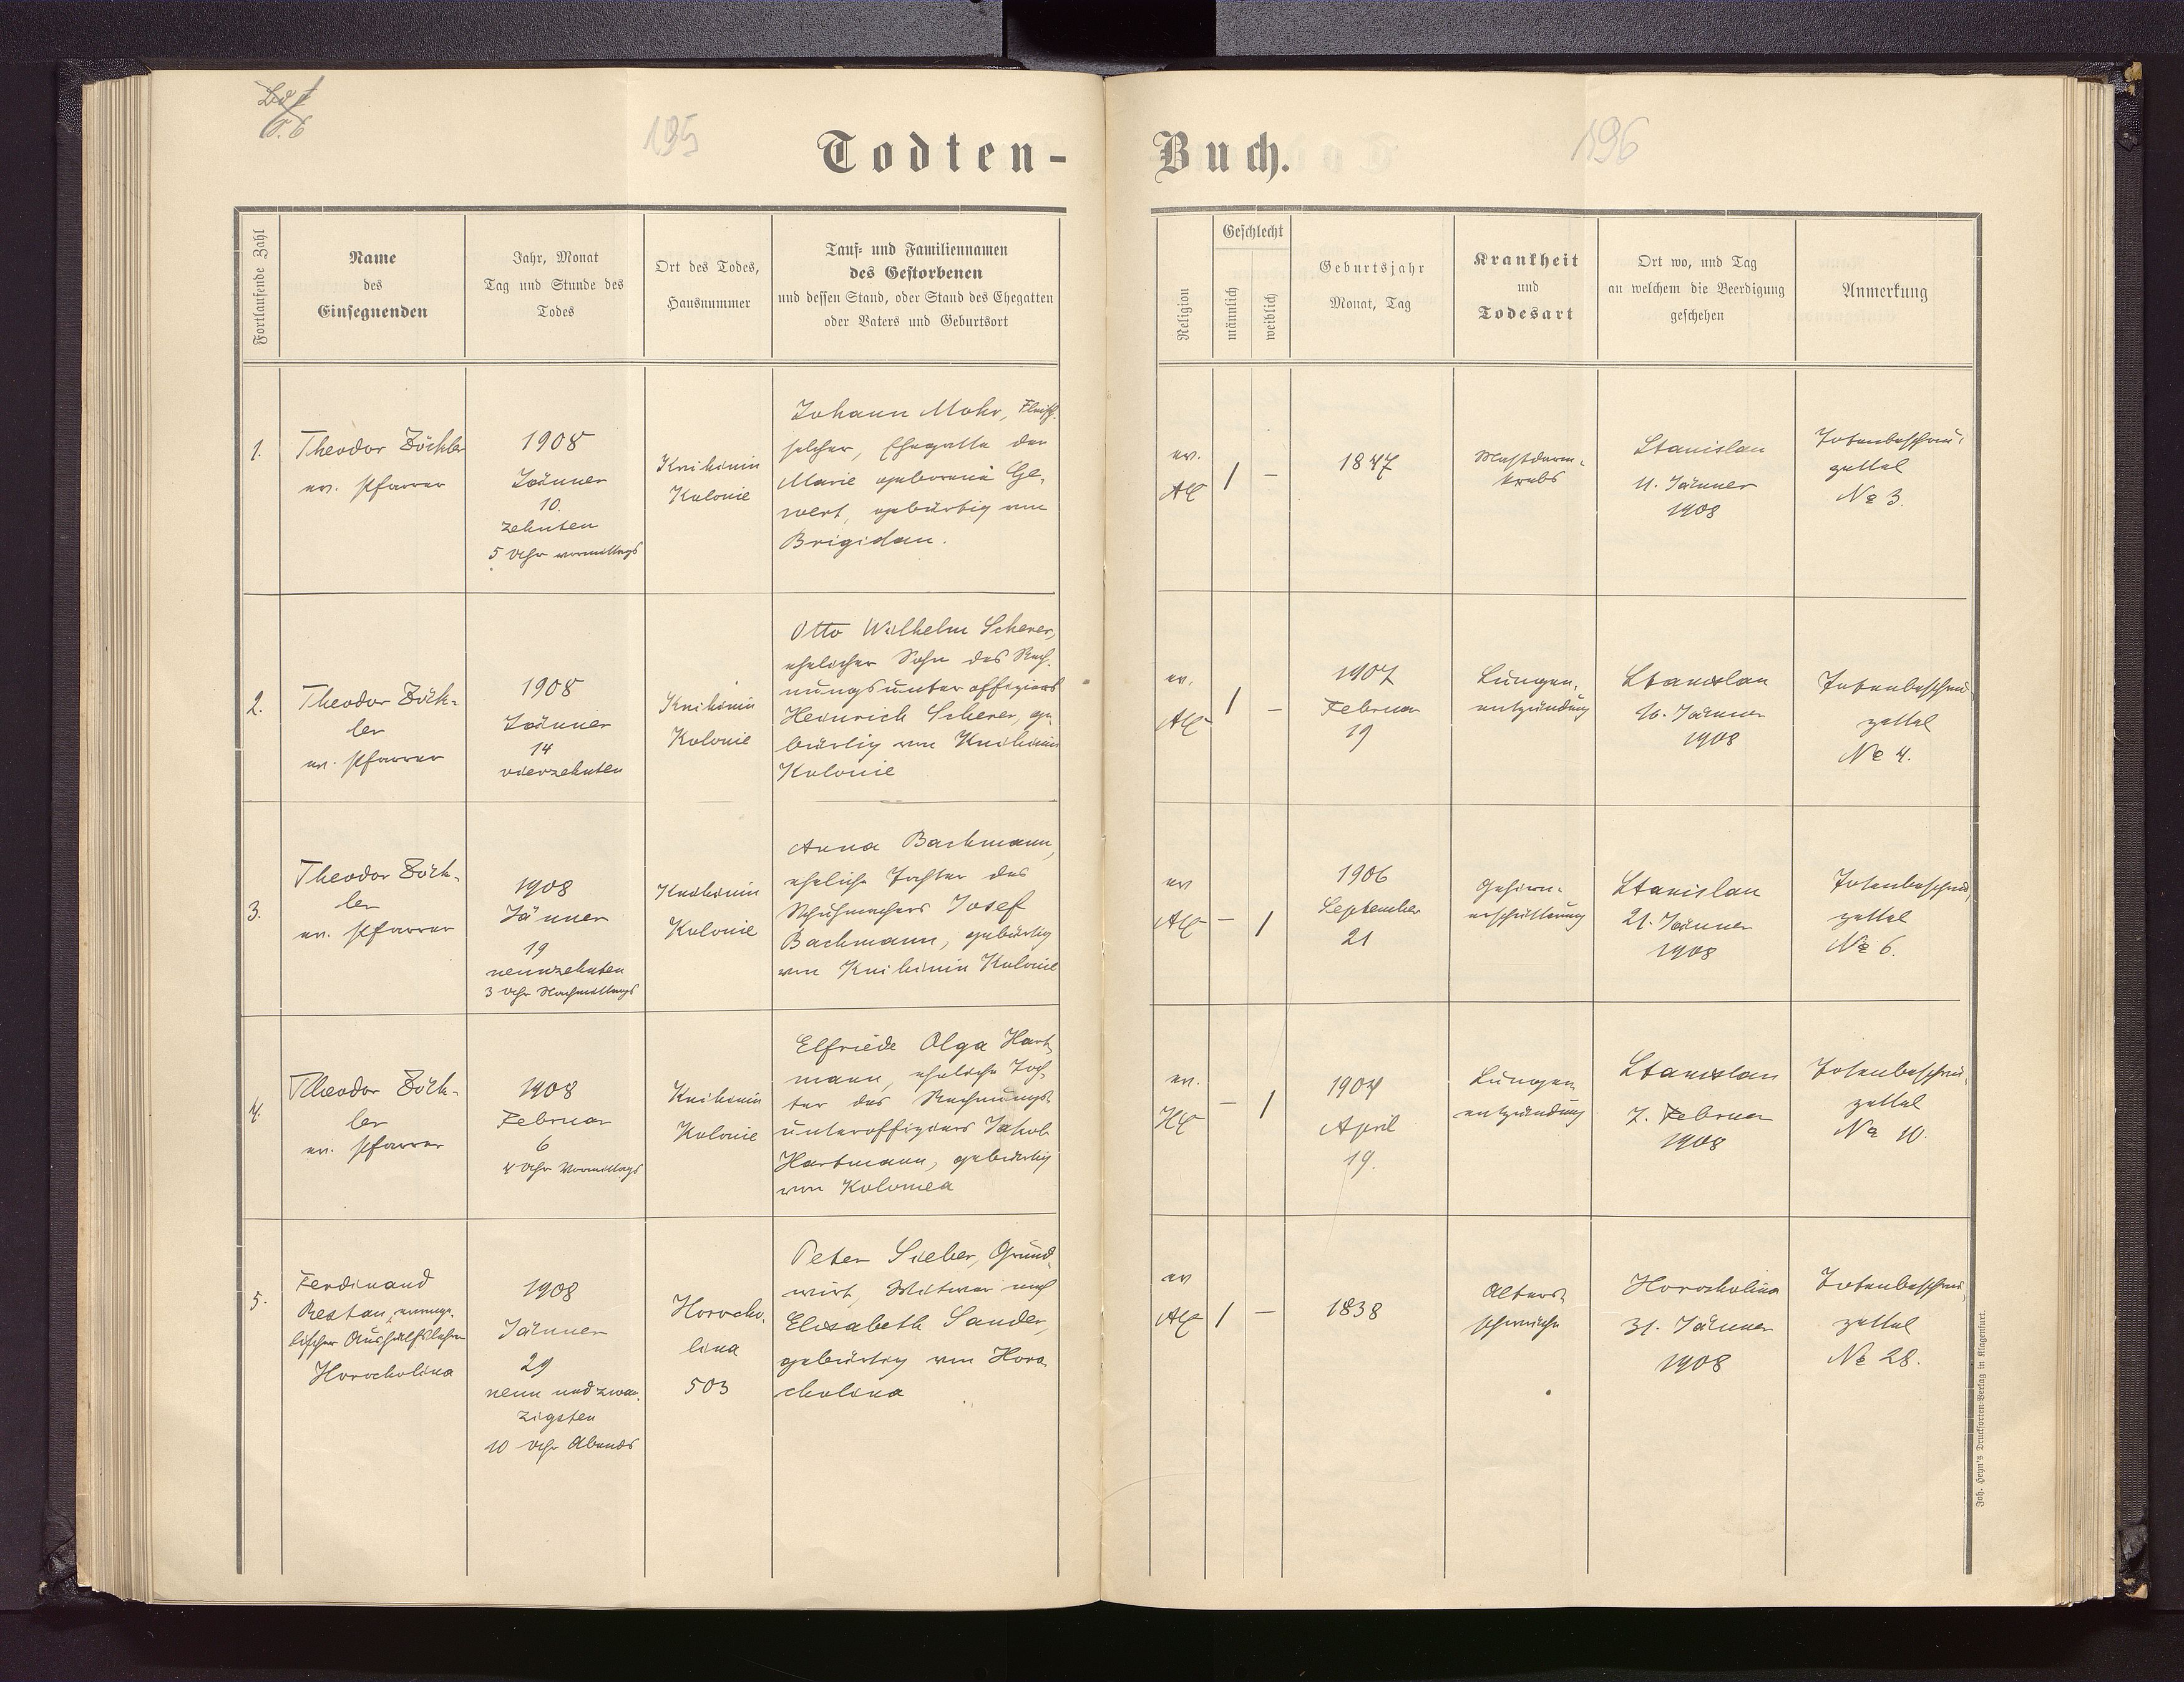 195
Todten-
Buch.
196
Fortlaufende Zahl
Name
des
Einsegnenden
Jahr, Monat
Tag und Stunde des
Todes
Ort des Todes,
Hausnummer
Tauf- und Familiennamen
des Gestorbenen
und dessen Stand, oder Stand des Ehegatten
oder Vaters und Geburtsort
Religion
Geschlecht
männlich
weiblich
Geburtsjahr
Monat, Tag
Krankheit
und
Todesart
Ort wo, und Tag
an welchem die Beerdigung
geschehen
Anmerkung
1.
Theodor Zöckler
ev. Pfarrer
1908
Jänner
10.
zehnten
5 Uhr vormittags
Knihinin
Kolonie
Johann Mohr, Fleisch-
selcher, Ehegatte der
Marie geborene Ge-
wert, gebürtig von
Brigidau.
ev.
AC
1
–
1847
Mastdarm-
krebs
Stanislau
11. Jänner
1908
Totenbeschau-
zettel
No 3.
2.
Theodor Zöck-
ler
ev. Pfarrer
1908
Jänner
14
vierzehnten
Knihinin
Kolonie
Otto Wilhelm Scherer,
ehelicher Sohn des Rech-
nungsunteroffiziers
Heinrich Scherer, ge-
bürtig von Knihinin
Kolonie
ev.
AC
1
–
1907
Februar
19
Lungen-
entzündung
Stanislau
16. Jänner
1908
Totenbeschau-
zettel
No 4.
3.
Theodor Zöck-
ler
ev. Pfarrer
1908
Jänner
19
neunzehnten
3 Uhr Nachmittags
Knihinin
Kolonie
Anna Bachmann,
eheliche Tochter des
Schuhmachers Josef
Bachmann, gebürtig
von Knihinin Kolonie
ev
AC
–
1
1906
September
21
Gehirn-
erschütterung
Stanislau
21. Jänner
1908
Totenbeschau-
zettel
No 6.
4.
Theodor Zöck-
ler
ev. Pfarrer
1908
Februar
6
4 Uhr Vormittags
Knihinin
Kolonie
Elfriede Olga Hart-
mann, eheliche Toch-
ter des Rechnungs-
unteroffiziers Jakob
Hartmann, gebürtig
von Kolomea
ev.
HC
–
1
1904
April
19.
Lungen-
entzündung
Stanislau
7. Februar
1908
Totenbeschau-
zettel
No 10.
5.
Ferdinand
Restau, evange-
lischer Aushilfslehrer
Horocholina
1908
Jänner
29
neun und zwan-
zigsten
10 Uhr Abends
Horocho-
lina
503
Peter Sieber, Grund-
wirt, Witwer nach
Elisabeth Sander,
gebürtig von Horo-
cholina
ev
AC
1
–
1838
Alters-
schwäche
Horocholina
31. Jänner
1908
Totenbeschau-
zettel
No 28.
Joh. Heyn's Drucksorten-Verlag in Klagenfurt.